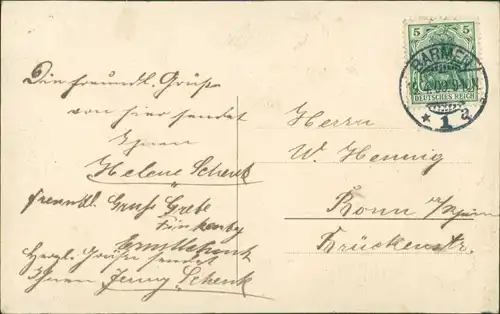 Die freundl. Grüße
von hier sendet
Ihnen
Helene Schenk
Freundl. Gruß Grete
Herzl. Grüße sendet
Ihnen Jenny Schenk
5 5
DEUTSCHES REICH
BARMEN
* 1 a
Herrn
W. Hennig
Bonn a/Rhein
Brückenstr.